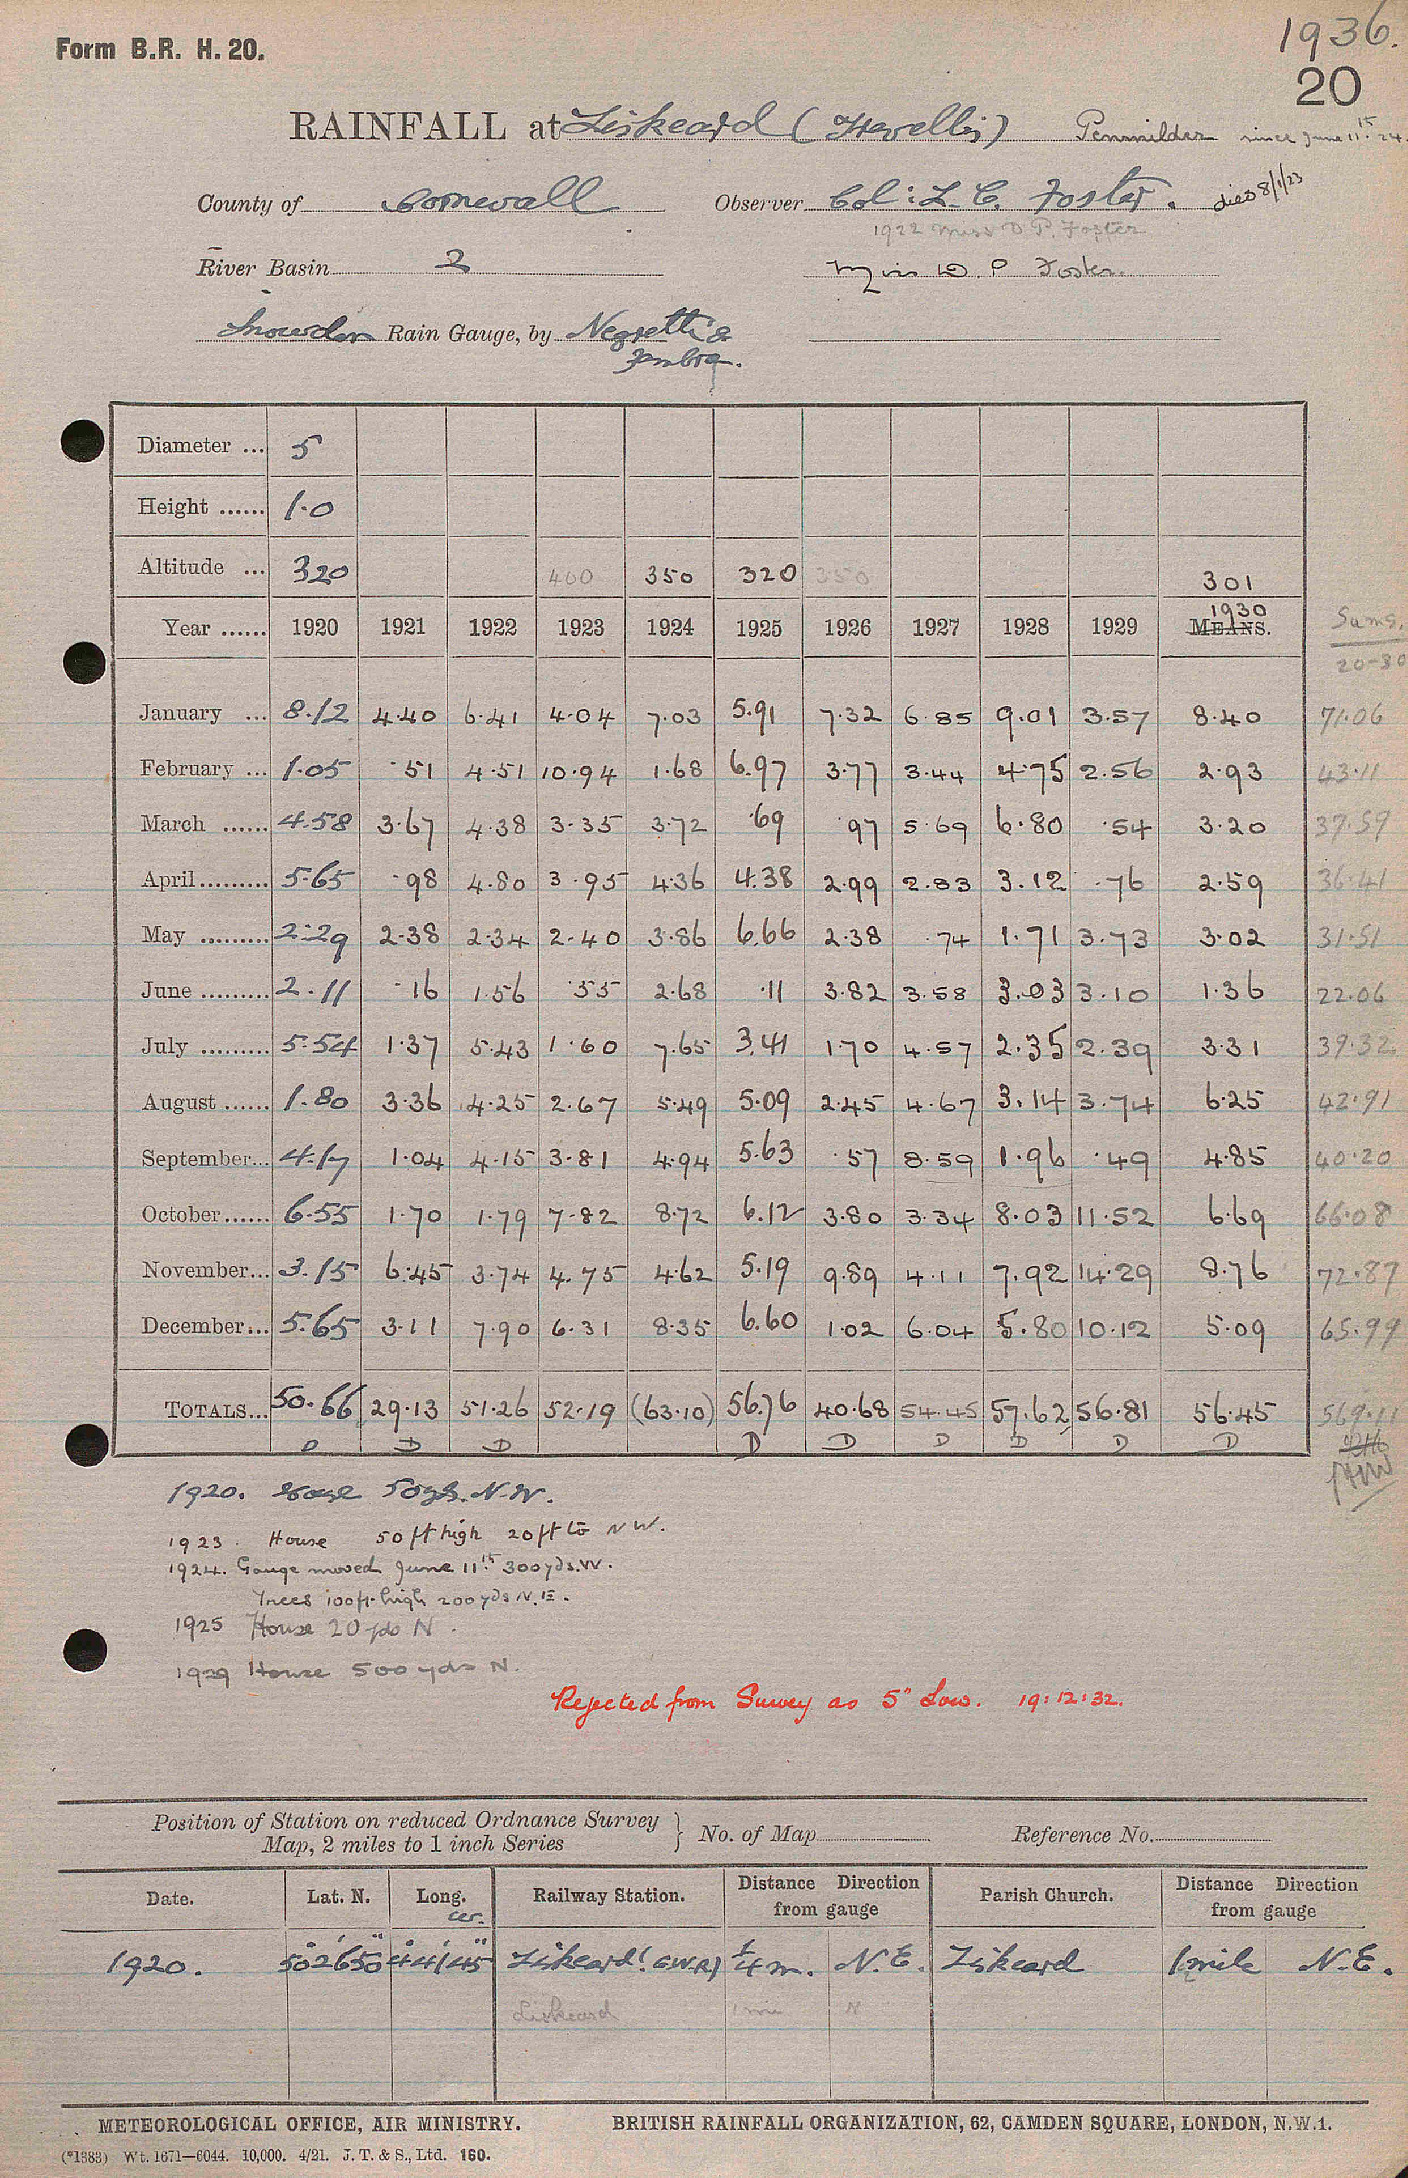 Form B.R. H. 20.
1936.
20
RAINFALL at Liskeard (Trevillis) Penmilder since June 11th. 24.
County of Cornwall Observer Col: L. C. Foster. died 8/1/23
1922 Miss D. P. Foster
River Basin 2 Miss D P Foster.
Snowdon Rain Gauge, by Negretti & Zambra.
Diameter ... 5
Height ...... 1.0
Altitude ... 320 400 350 320 350 301
Year ...... 1920 1921 1922 1923 1924 1925 1926 1927 1928 1929 1930 MEANS. Sums. 20-30
January ... 8.12 4.40 6.41 4.04 7.03 5.91 7.32 6.85 9.01 3.57 8.40 71.06
February ... 1.05 .51 4.51 10.94 1.68 6.97 3.77 3.44 4.75 2.56 2.93 43.11
March ...... 4.58 3.67 4.38 3.35 3.72 .69 .97 5.69 6.80 .54 3.20 37.59
April ......... 5.65 .98 4.80 3.95 4.36 4.38 2.99 2.83 3.12 .76 2.59 36.41
May ......... 2.29 2.38 2.34 2.40 3.86 6.66 2.38 .74 1.71 3.73 3.02 31.51
June ......... 2.11 .16 1.56 .55 2.68 .11 3.82 3.58 3.03 3.10 1.36 22.06
July ......... 5.54 1.37 5.43 1.60 7.65 3.41 1.70 4.57 2.35 2.39 3.31 39.32
August ...... 1.80 3.36 4.25 2.67 5.49 5.09 2.45 4.67 3.14 3.74 6.25 42.91
September... 4.17 1.04 4.15 3.81 4.94 5.63 .57 8.59 1.96 .49 4.85 40.20
October...... 6.55 1.70 1.79 7.82 8.72 6.12 3.80 3.34 8.03 11.52 6.69 66.08
November... 3.15 6.45 3.74 4.75 4.62 5.19 9.89 4.11 7.92 14.29 8.76 72.87
December ... 5.65 3.11 7.90 6.31 8.35 6.60 1.02 6.04 5.80 10.12 5.09 65.99
TOTALS... 50.66 29.13 51.26 52.19 (63.10) 56.76 40.68 54.45 57.62 56.81 56.45 569.11
D D D D D D D D D
1920. House 50yds. N.W.
1923. House 50 ft high 20 ft to NW.
1924. Gauge moved June 11th. 300yds.W.
Trees 100ft. high 200 yds N.E.
1925 House 20 yds N.
1929 House 500 yds N.
Rejected from Survey as 5" Low. 19:12:32.
Position of Station on reduced Ordnance Survey
Map, 2 miles to 1 inch Series } No. of Map Reference No.
Date. Lat. N. Long. Railway Station. Distance Direction from gauge Parish Church. Distance Direction from gauge
1920. 50° 26' 50" 4° 41' 45" Liskeard (G.W.R) 1/4 m. N.E. Liskeard 1/2 mile N.E.
Liskeard N
METEOROLOGICAL OFFICE, AIR MINISTRY. BRITISH RAINFALL ORGANIZATION, 62, CAMDEN SQUARE, LONDON, N.W.1.
(*1383) Wt. 1671—6044. 10,000. 4/21. J. T. & S., Ltd. 160.